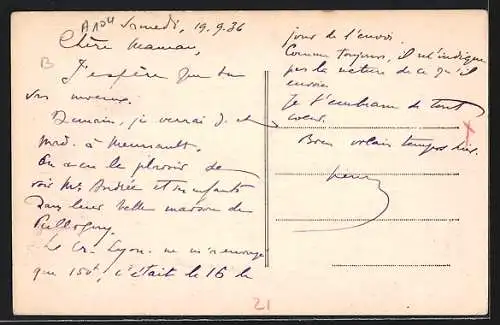 A104
Samedi, 19.9.36
Chère Maman,
B
J'espère que tu
vas mieux.
Demain, je verrai J. et
Mad. à Meursault.
On a eu le plaisir de
voir Mme Andrée et ses enfants
dans leur belle maison de
Puligny.
Le Cr. Lyon. ne m'a envoyé
que 150f, c'était le 16 le
jour de l'envoi.
Comme toujours, il n'indique
pas la nature de ce qu'il
envoie.
Je t'embrasse de tout
coeur.
x
Bon temps hier.
21